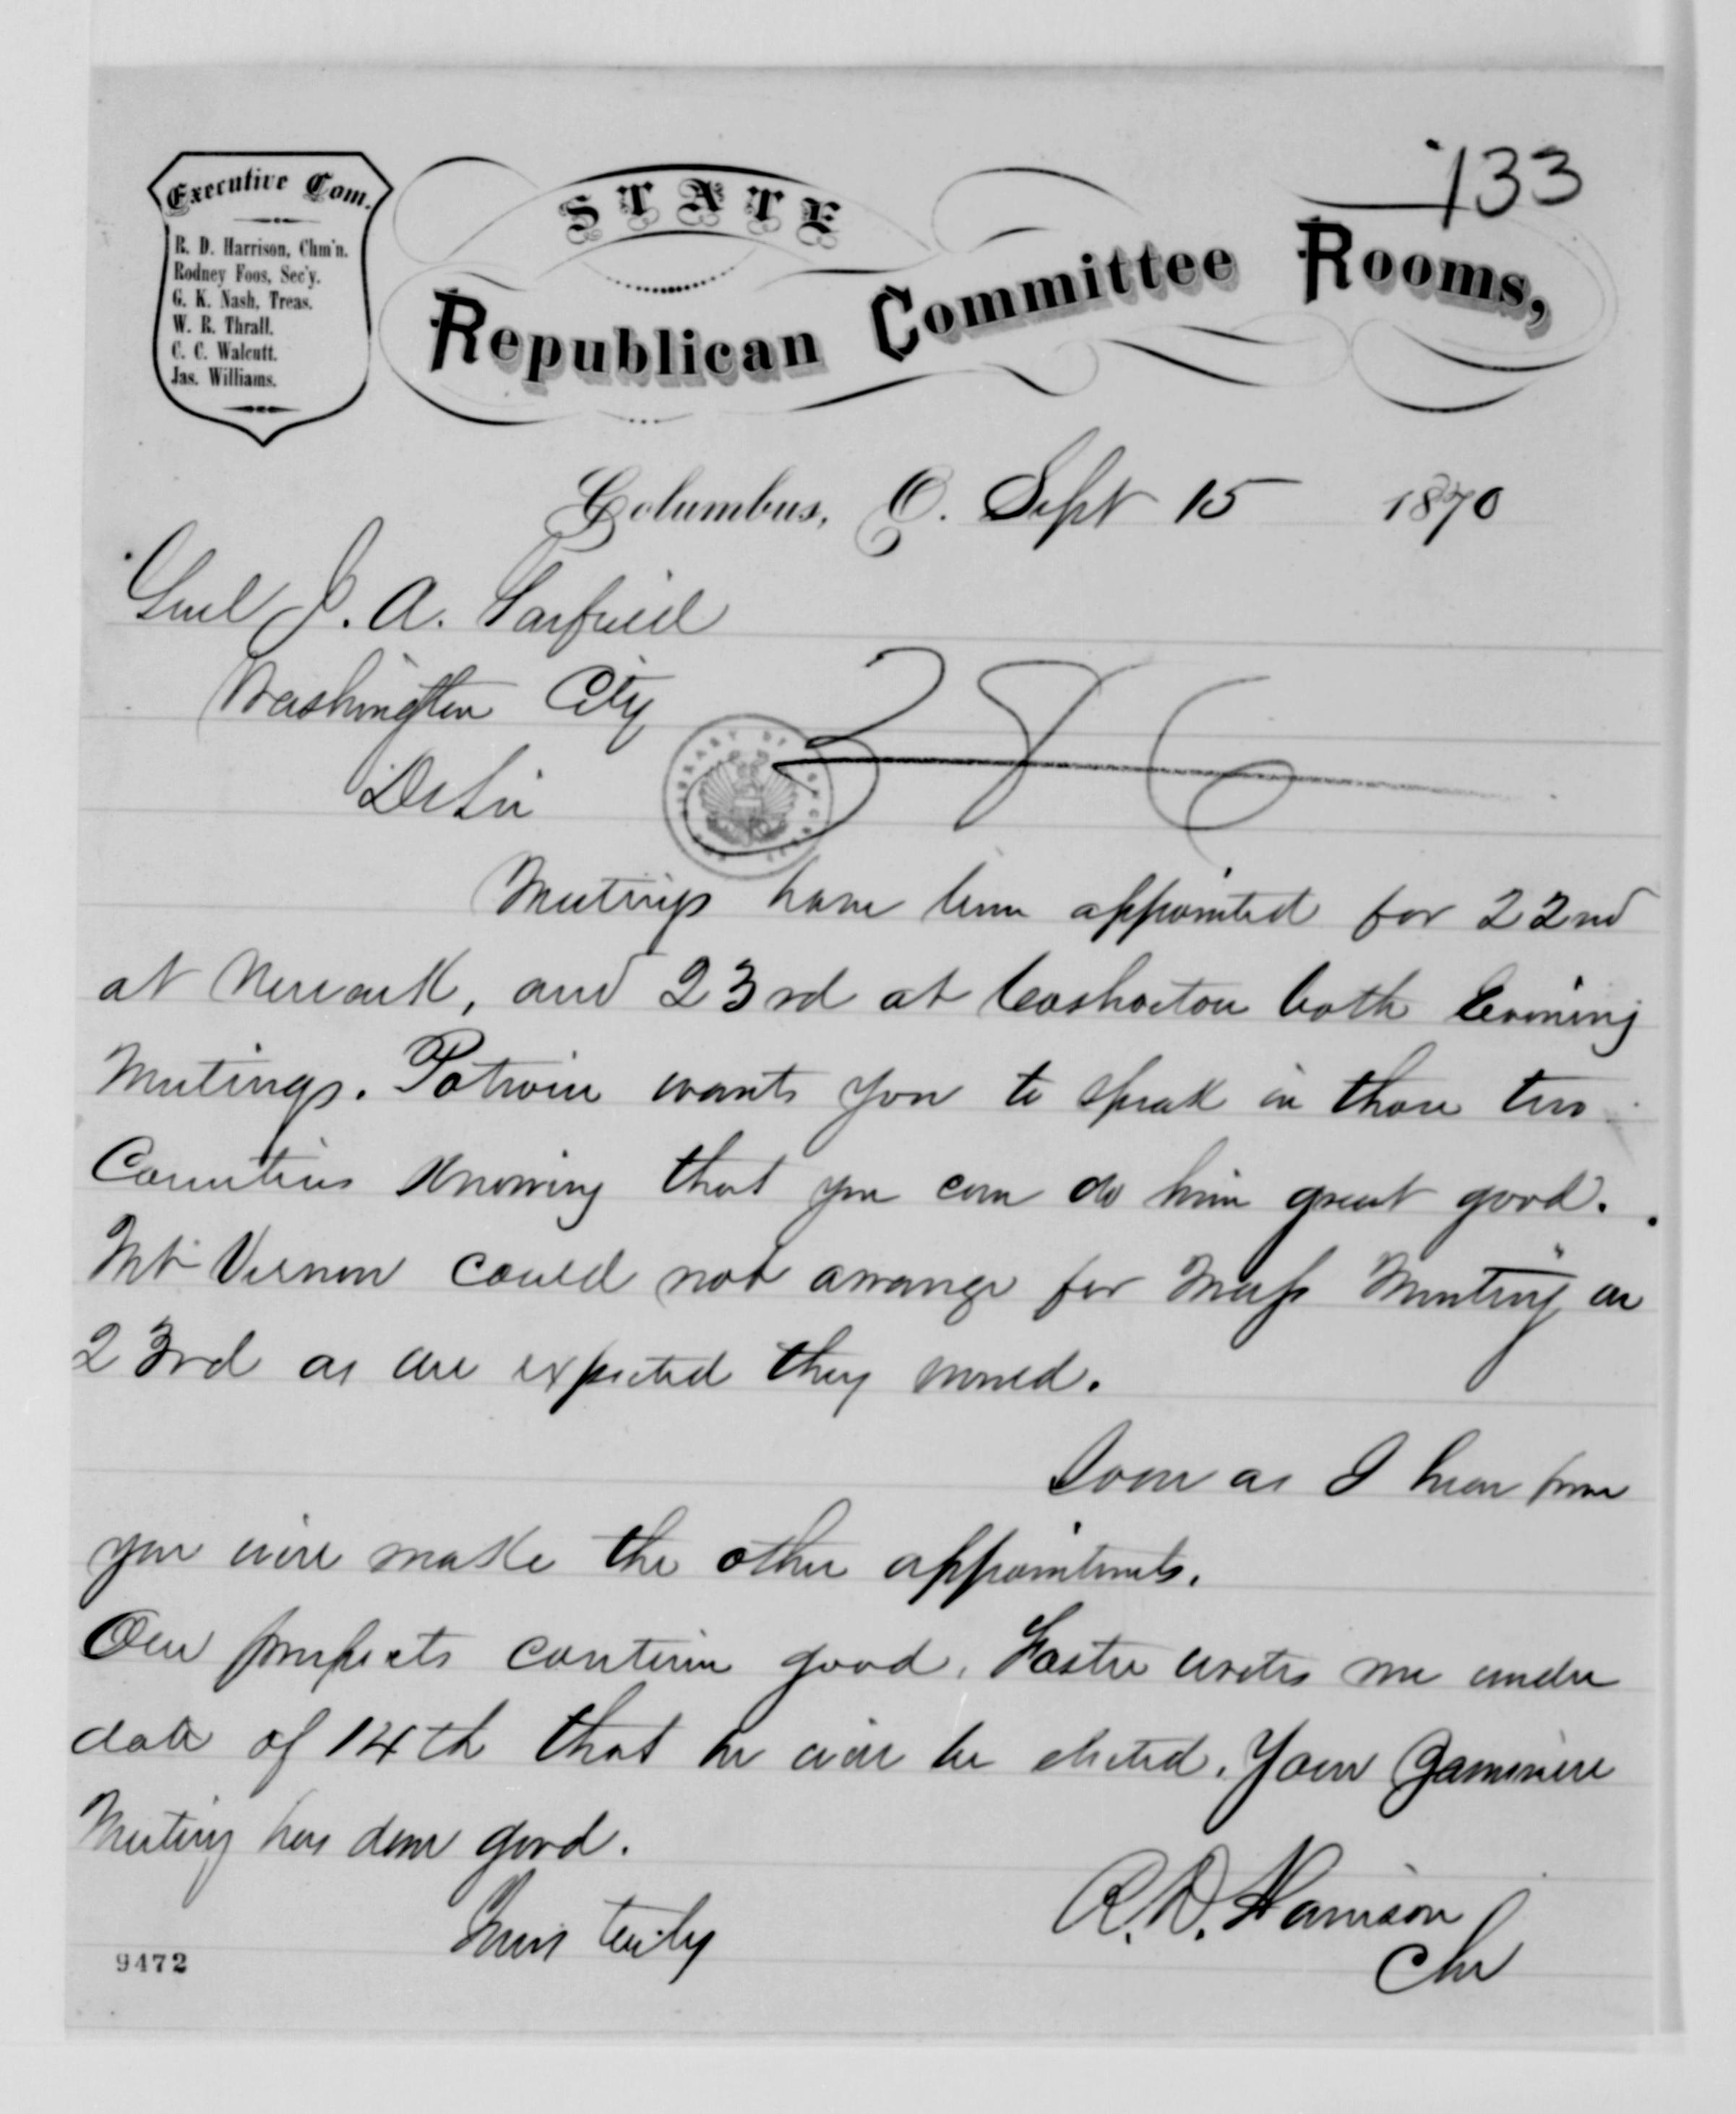 133
Executive Com.
R. D. Harrison, Chm'n.
Rodney Foos, Sec'y.
G. K. Nash, Treas.
W. R. Thrall.
C. C. Walcutt.
Jas. Williams.
STATE
Republican Committee Rooms,
Columbus, O. Sept 15 1870
Genl J. A. Garfield
Washington City
Dr Sir
Meetings have been appointed for 22nd
at Newark, and 23rd at Coshocton both Evening
Meetings. Potwin wants you to speak in those two
Counties knowing that you can do him great good.
Mt Vernon could not arrange for Mass Meeting on
23rd as we expected they would.
Soon as I hear from
you will make the other appointments.
Our prospects continue good. Foster writes me under
date of 14th that he will be elected. Your
Meeting has done good.
Yours truly
R. D. Harrison
Chr
9472